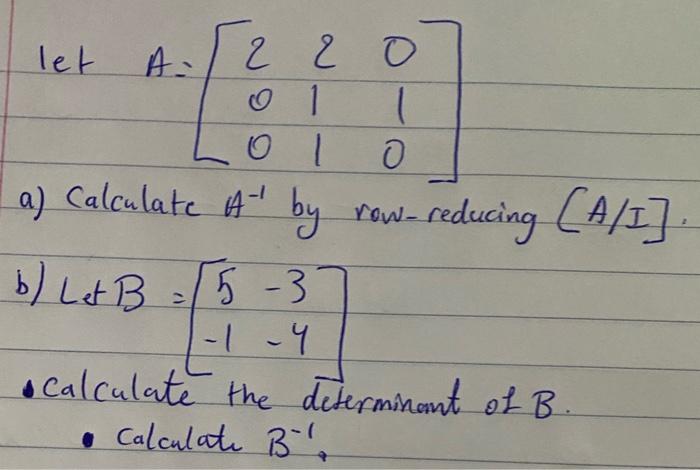 let A = [ 2 2 0
0 1 1
0 1 0 ]
a) Calculate A⁻¹ by row-reducing [A/I].
b) Let B = [ 5 -3
-1 -4 ]
• Calculate the determinant of B.
• Calculate B⁻¹.